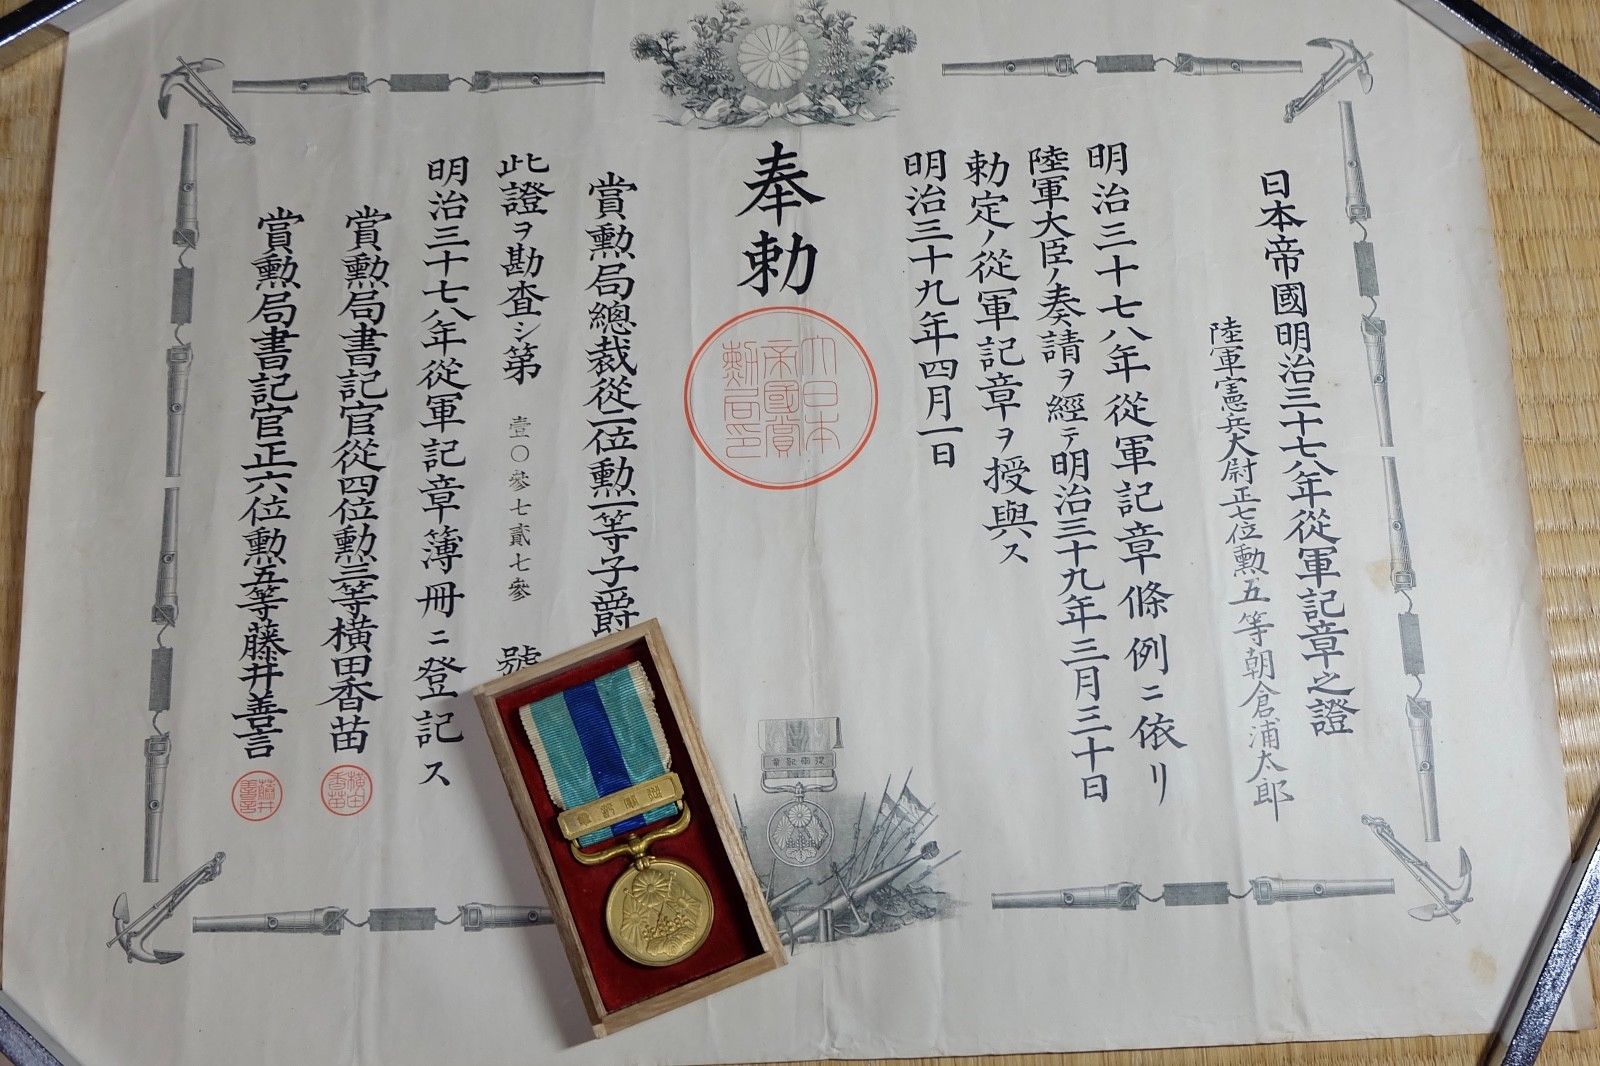 日本帝國明治三十七八年從軍記章之證
陸軍憲兵大尉正七位勲五等朝倉浦太郎
明治三十七八年從軍記章條例ニ依リ
陸軍大臣ノ奏請ヲ經テ明治三十九年三月三十日
勅定ノ從軍記章ヲ授與ス
明治三十九年四月一日
奉勅
大日本
帝國賞
勲局印
賞勲局總裁從二位勲一等子爵
此證ヲ勘査シ第壹〇參七貳七參號
明治三十七八年從軍記章簿冊ニ登記ス
賞勲局書記官從四位勲三等橫田香苗
橫田香苗
賞勲局書記官正六位勲五等藤井善言
藤井善言
從軍記章
從軍記章